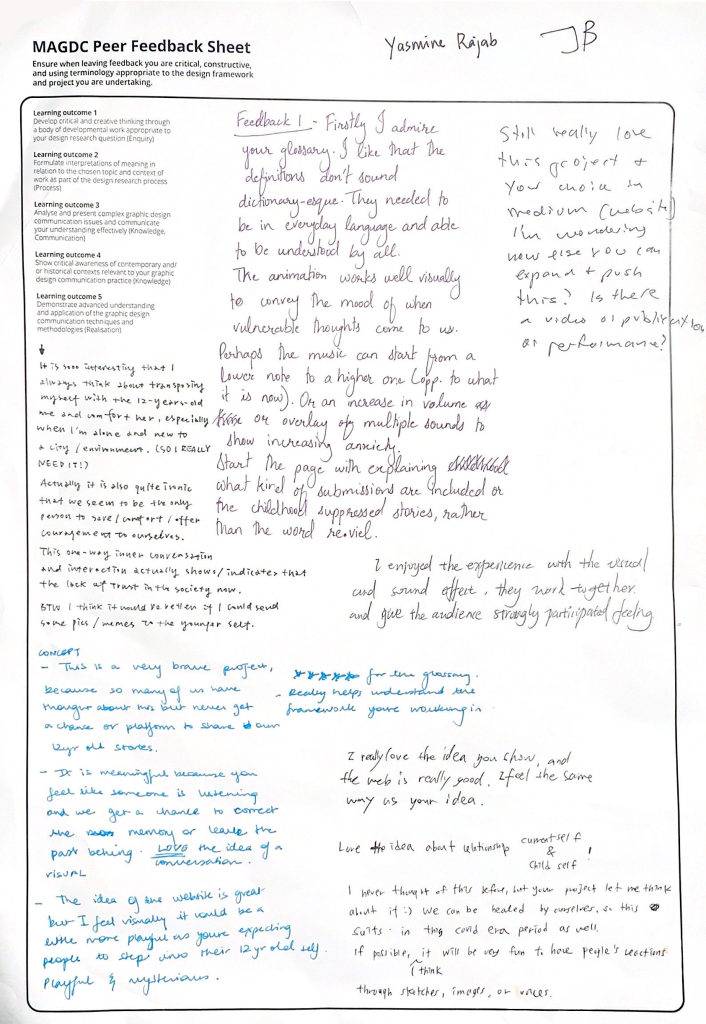 MAGDC Peer Feedback Sheet
Ensure when leaving feedback you are critical, constructive,
and using terminology appropriate to the design framework
and project you are undertaking.
Yasmine Rajab
JB
Learning outcome 1
Develop critical and creative thinking through
a body of developmental work appropriate to
your design research question (Enquiry)
Learning outcome 2
Formulate interpretations of meaning in
relation to the chosen topic and context of
work as part of the design research process
(Process)
Learning outcome 3
Analyse and present complex graphic design
communication issues and communicate
your understanding effectively (Knowledge,
Communication)
Learning outcome 4
Show critical awareness of contemporary and/
or historical contexts relevant to your graphic
design communication practice (Knowledge)
Learning outcome 5
Demonstrate advanced understanding
and application of the graphic design
communication techniques and
methodologies (Realisation)
Feedback 1 - Firstly I admire
your glossary. I like that the
definitions don't sound
dictionary-esque. They needed to
be in everyday language and able
to be understood by all.
The animation works well visually
to convey the mood of when
vulnerable thoughts come to us.
Perhaps the music can start from a
lower note to a higher one (opp. to what
it is now). Or an increase in volume
or overlay of multiple sounds to
show increasing anxiety.
Start the page with explaining
what kind of submissions are included or
the childhood suppressed stories, rather
than the word re.viel.
Still really love
this project +
your choice in
medium (website)
I'm wondering
how else you can
expand + push
this? Is there
a video or publication
or performance?
It is sooo interesting that I
always think about transposing
myself with the 12-years-old
me and comfort her, especially
when I'm alone and new to
a city / environment. (SO I REALLY
NEED IT!)
Actually it is also quite ironic
that we seem to be the only
person to save / comfort / offer
couragement to ourselves.
This one-way inner conversation
and interaction actually shows / indicates that
the lack of trust in the society now.
BTW I think it would be better if I could send
some pics / memes to the younger self.
I enjoyed the experience with the visual
and sound effect, they work together.
and give the audience strongly participated feeling
CONCEPT
- This is a very brave project,
because so many of us have
thought about this but never get
a chance or platform to share our
12yr old stories.
- It is meaningful because you
feel like someone is listening
and we get a chance to correct
the memory or leave the
past behing. LOVE the idea of a
visual conversation.
- The idea of the website is great
but I feel visually it could be a
little more playful as you're expecting
people to step into their 12yr old self.
Playful & mysterious.
***** for the glossary.
- Really helps understand the
framework you're working in.
I really love the idea you show, and
the web is really good. I feel the same
way as your idea.
Love the idea about relationship current self & child self !
I never thought of this before, but your project let me think
about it :) We can be healed by ourselves, so this
suits in this covid era period as well.
If possible, I think it will be very fun to have people's reactions
through sketches, images, or voices.